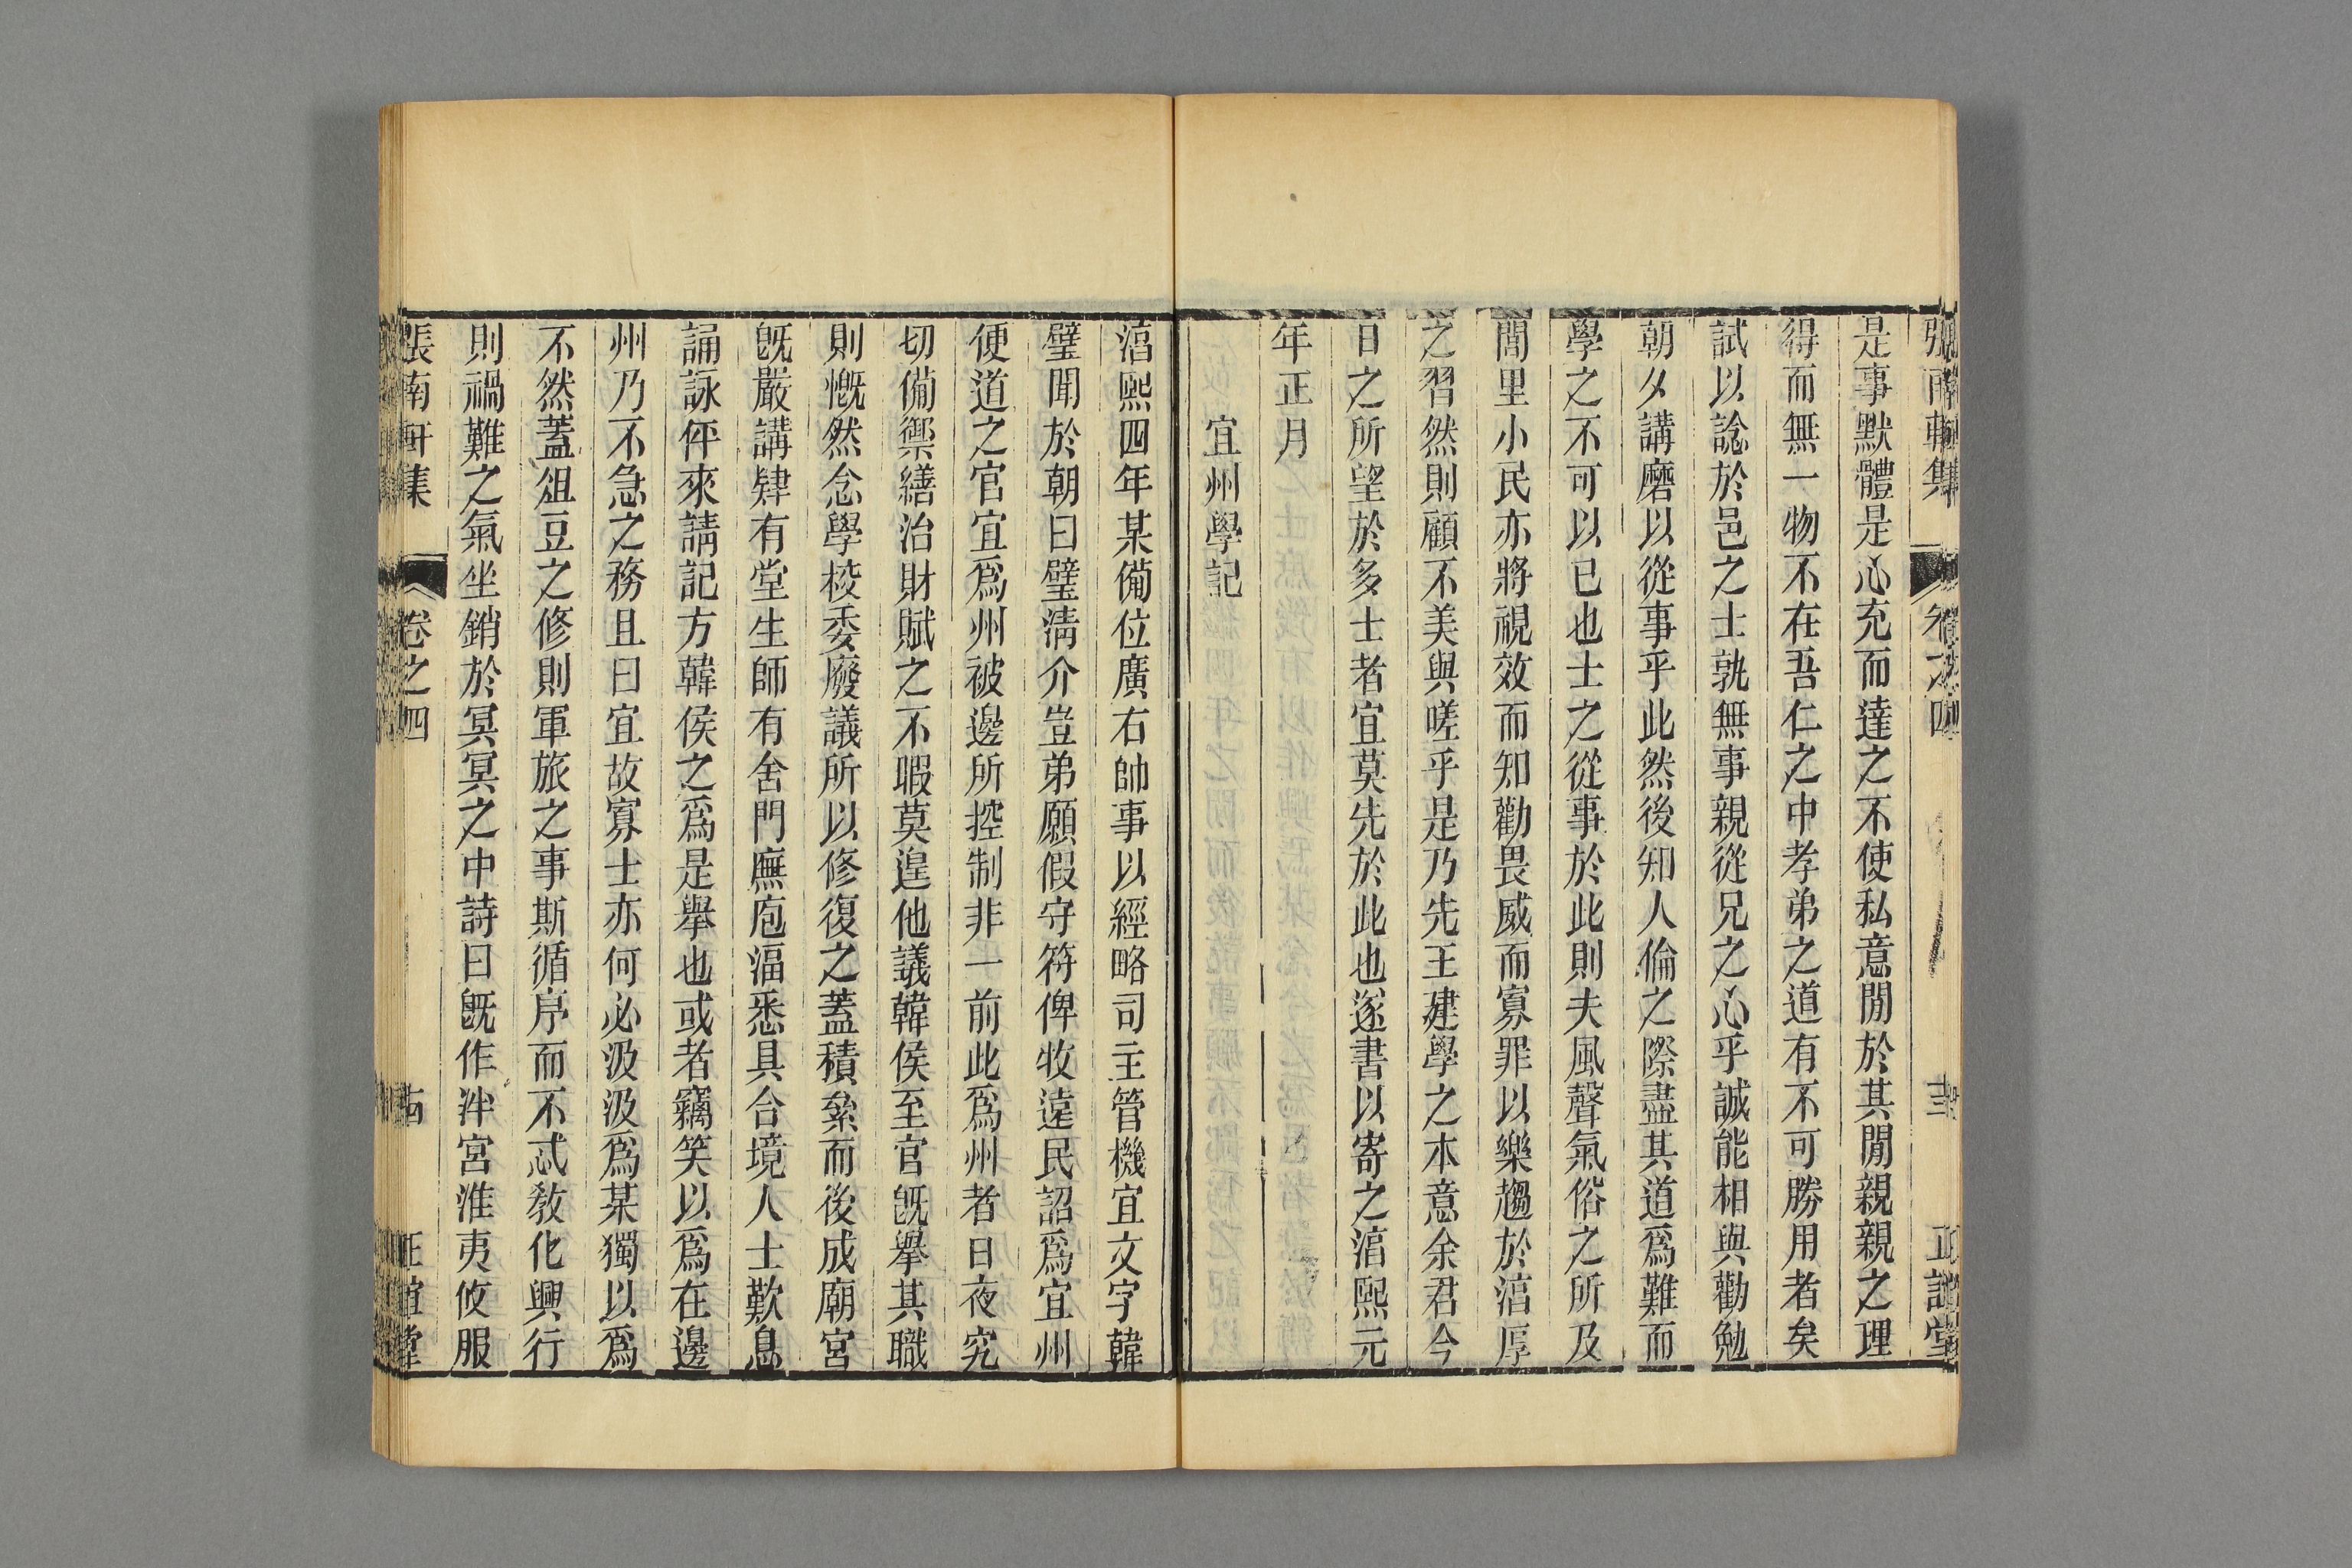 張南軒集 卷之四 正誼堂
是事默體是心充而達之不使私意閒於其閒親親之理
得而無一物不在吾仁之中孝弟之道有不可勝用者矣
試以諗於邑之士孰無事親從兄之心乎誠能相與勸勉
朝夕講磨以從事乎此然後知人倫之際盡其道爲難而
學之不可以已也士之從事於此則夫風聲氣俗之所及
閭里小民亦將視效而知勸畏威而寡罪以樂趨於湻厚
之習然則顧不美與嗟乎是乃先王建學之本意余君今
日之所望於多士者宜莫先於此也遂書以寄之湻熙元
年正月
宜州學記
湻熙四年某備位廣右帥事以經略司主管機宜文字韓
璧聞於朝曰璧淸介豈弟願假守符俾牧遠民詔爲宜州
便道之官宜爲州被邊所控制非一前此爲州者日夜究
切備禦繕治財賦之不暇莫遑他議韓侯至官旣舉其職
則慨然念學校委廢議所以修復之蓋積絫而後成廟宮
旣嚴講肄有堂生師有舍門廡庖湢悉具合境人士歎息
誦詠伻來請記方韓侯之爲是舉也或者竊笑以爲在邊
州乃不急之務且曰宜故寡士亦何必汲汲爲某獨以爲
不然蓋俎豆之修則軍旅之事斯循序而不忒敎化興行
則禍難之氣坐銷於冥冥之中詩曰旣作泮宮淮夷攸服
張南軒集 卷之四 正誼堂